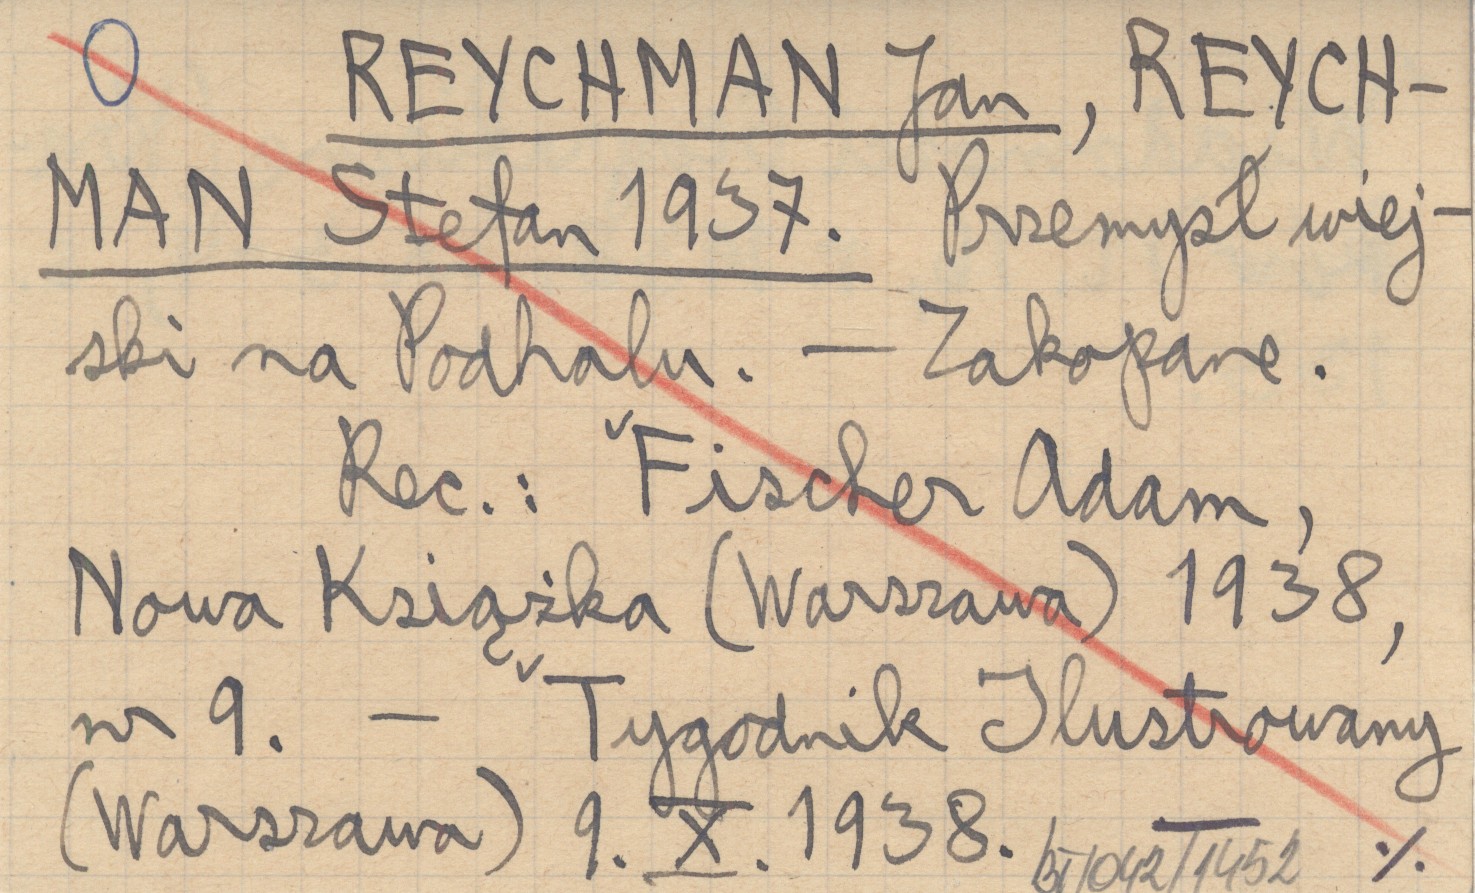 REYCHMAN Jan, REYCH-
MAN Stefan 1937. Przemysł wiej-
ski na Podhalu. — Zakopane.
Rec.: Fischer Adam,
Nowa Książka (Warszawa) 1938,
nr 9. — Tygodnik Ilustrowany
(Warszawa) 9. X. 1938. — ·/.
BT/042/1452